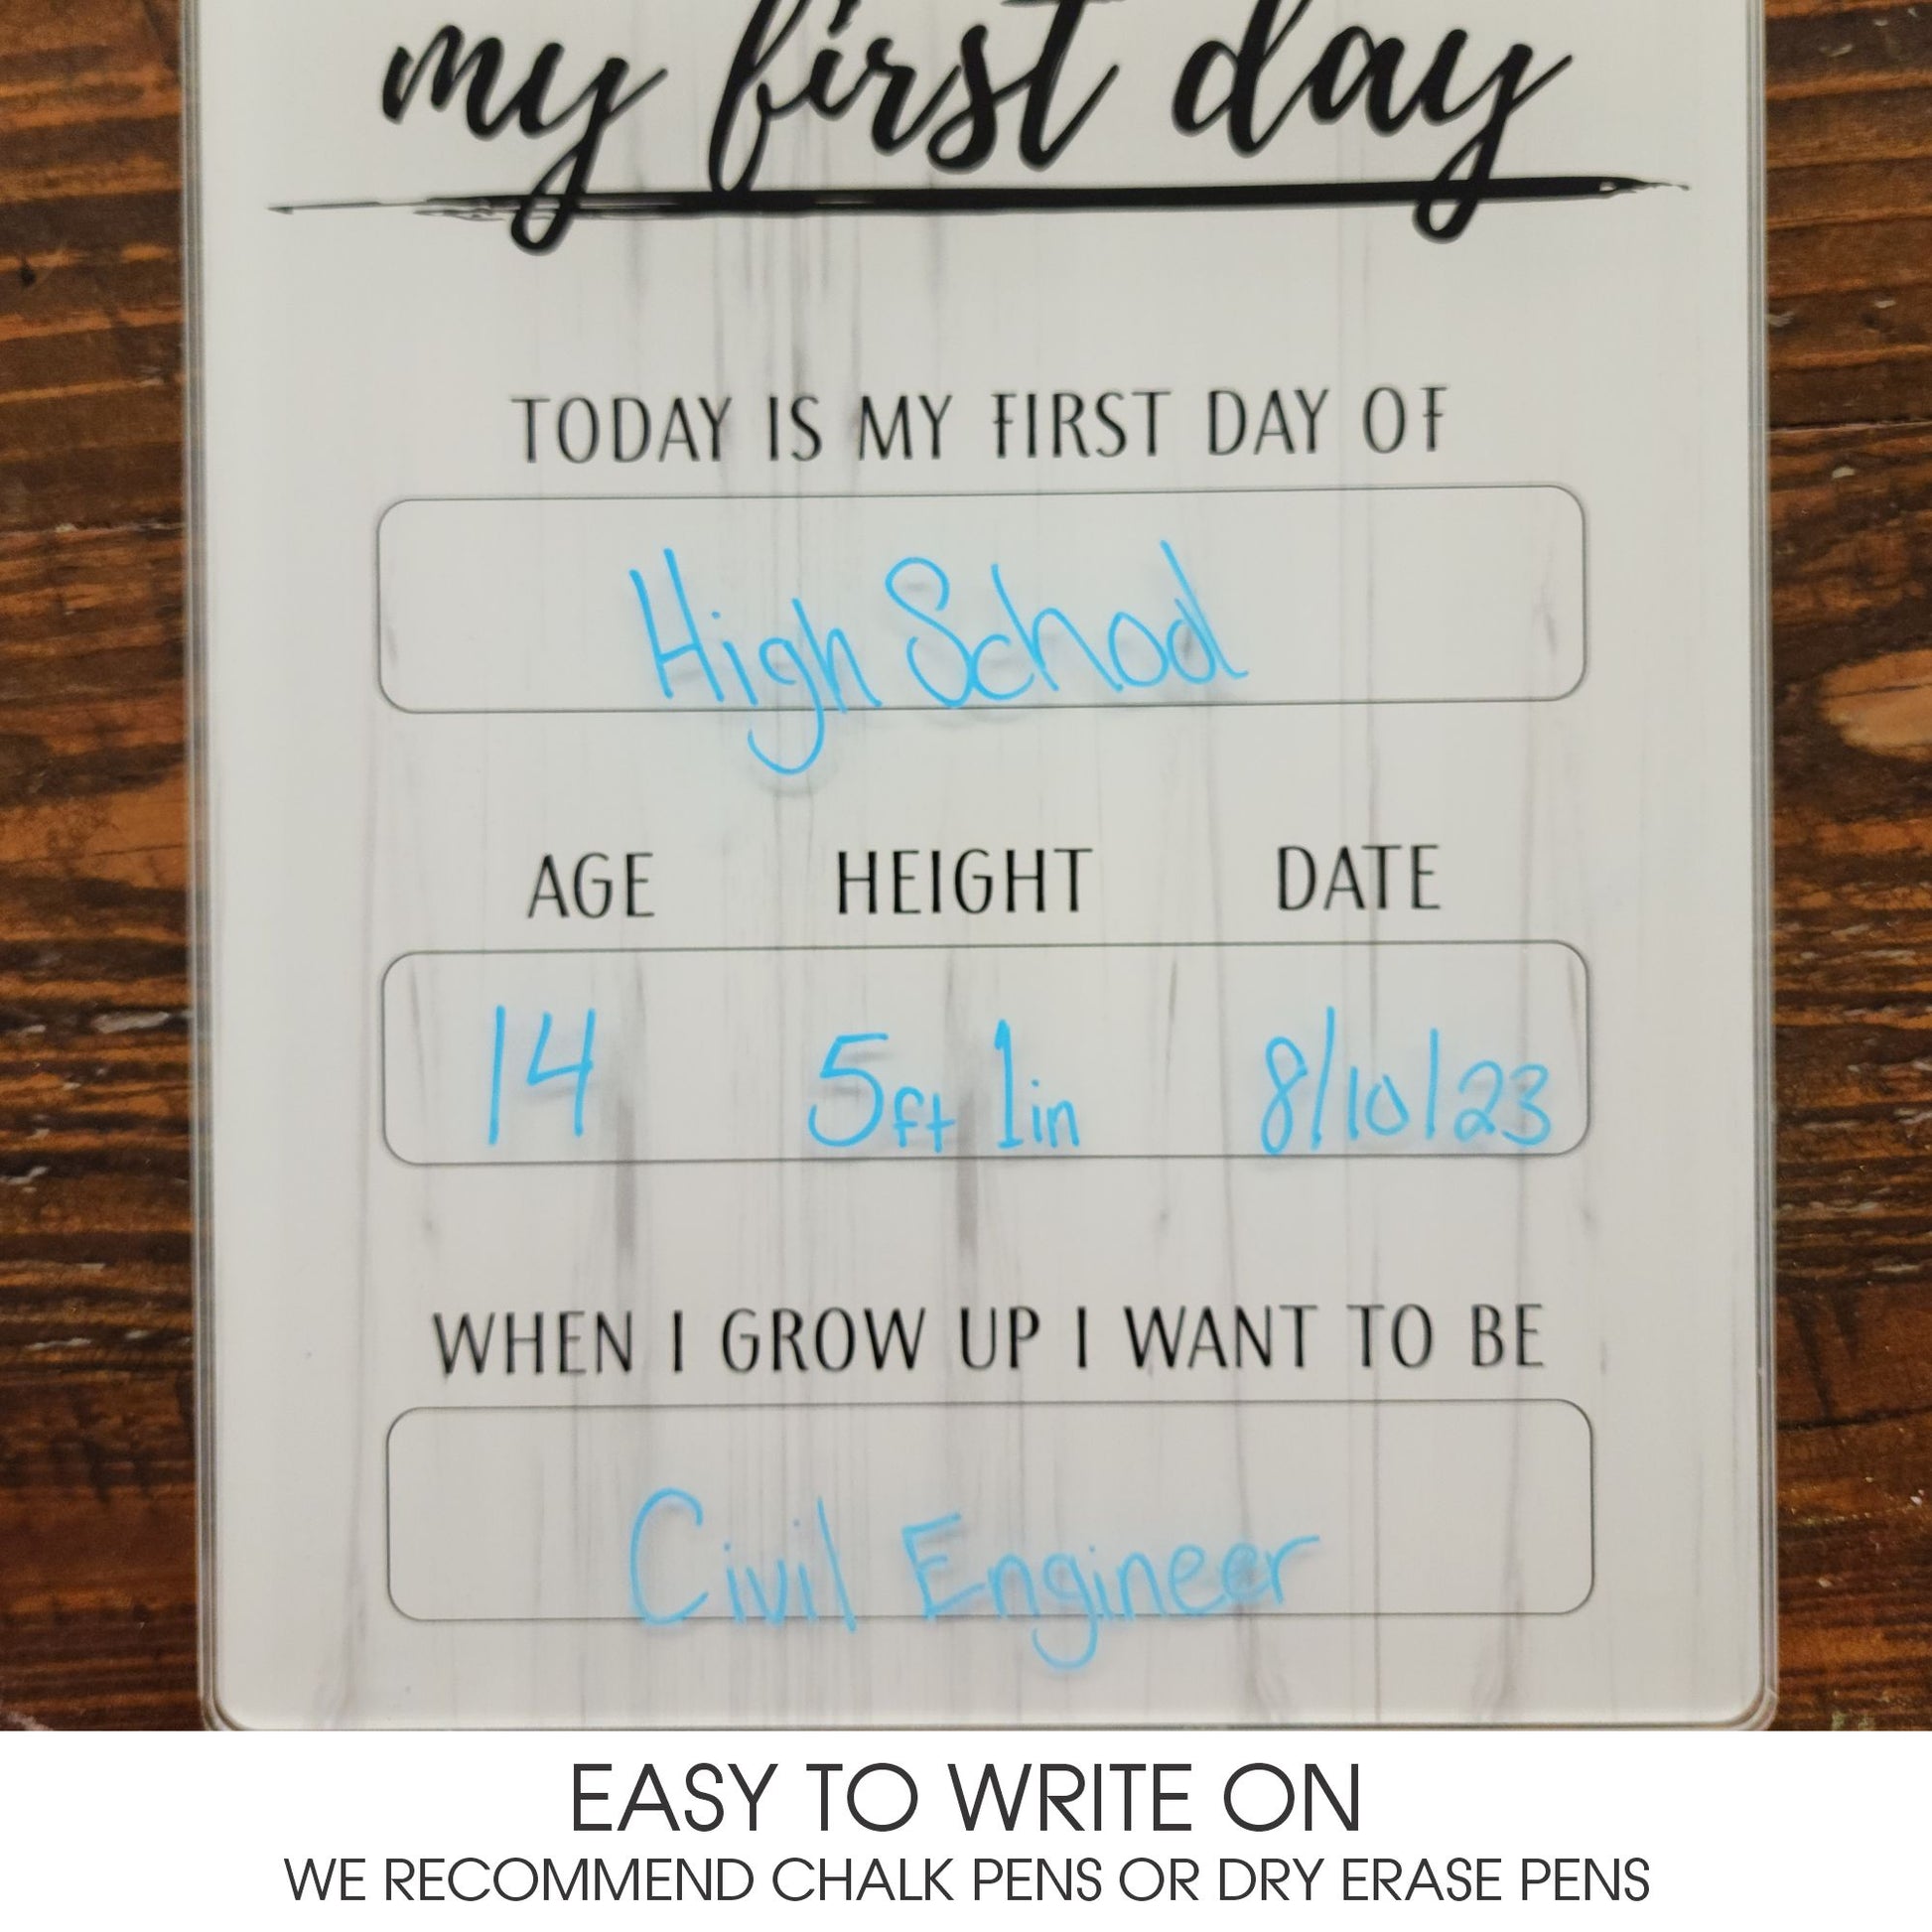 my first day
TODAY IS MY FIRST DAY OF
High School
AGE HEIGHT DATE
14 5ft 1in 8/10/23
WHEN I GROW UP I WANT TO BE
Civil Engineer
EASY TO WRITE ON
WE RECOMMEND CHALK PENS OR DRY ERASE PENS